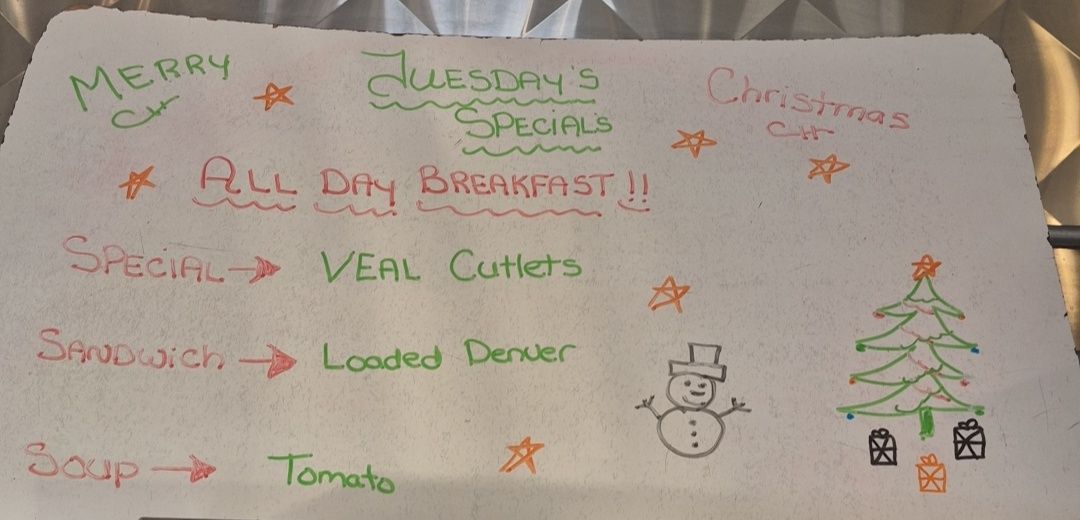 MERRY
TUESDAY'S
SPECIALS
Christmas
ALL DAY BREAKFAST!!
SPECIAL → VEAL Cutlets
SANDWich → Loaded Denver
Soup → Tomato